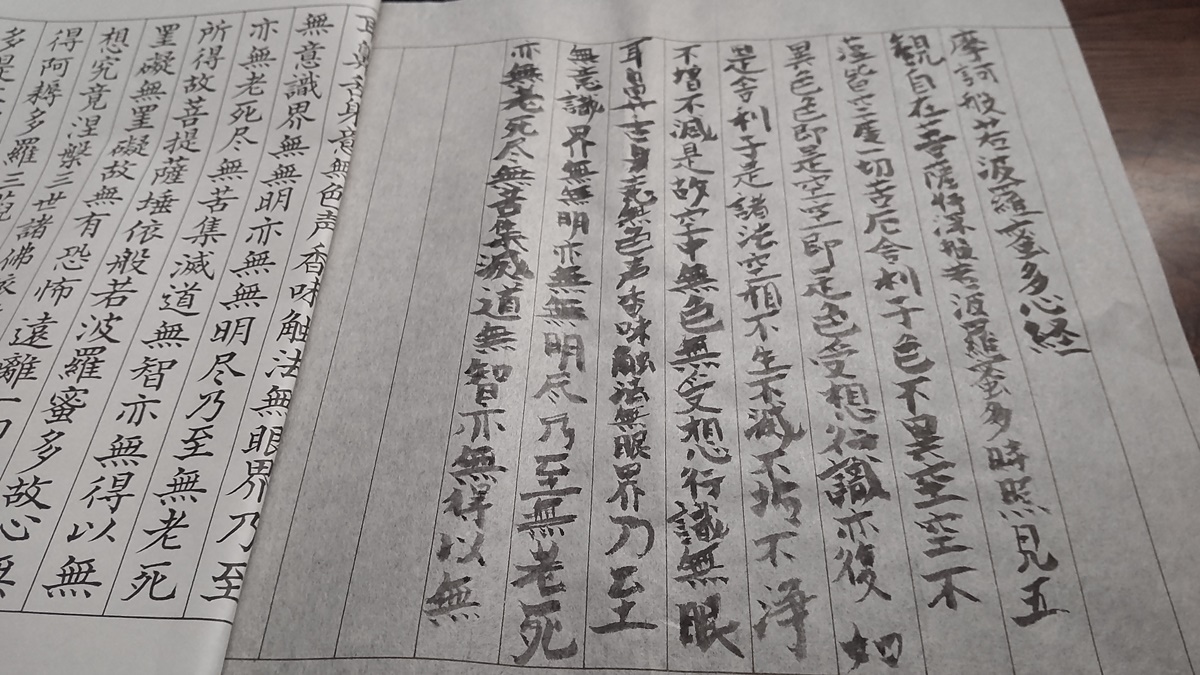 摩訶般若波羅蜜多心経
観自在菩薩行深般若波羅蜜多時照見五
蘊皆空度一切苦厄舎利子色不異空空不
異色色即是空空即是色受想行識亦復如
是舎利子是諸法空相不生不滅不垢不浄
不増不減是故空中無色無受想行識無眼
耳鼻舌身意無色声香味触法無眼界乃至
無意識界無無明亦無無明尽乃至無老死
亦無老死尽無苦集滅道無智亦無得以無
耳鼻舌身意無色声香味触法無眼界乃至
無意識界無無明亦無無明尽乃至無老死
亦無老死尽無苦集滅道無智亦無得以無
所得故菩提薩埵依般若波羅蜜多故心無
罣礙無罣礙故無有恐怖遠離一切
想究竟涅槃三世諸佛依
得阿耨多羅三藐
多是